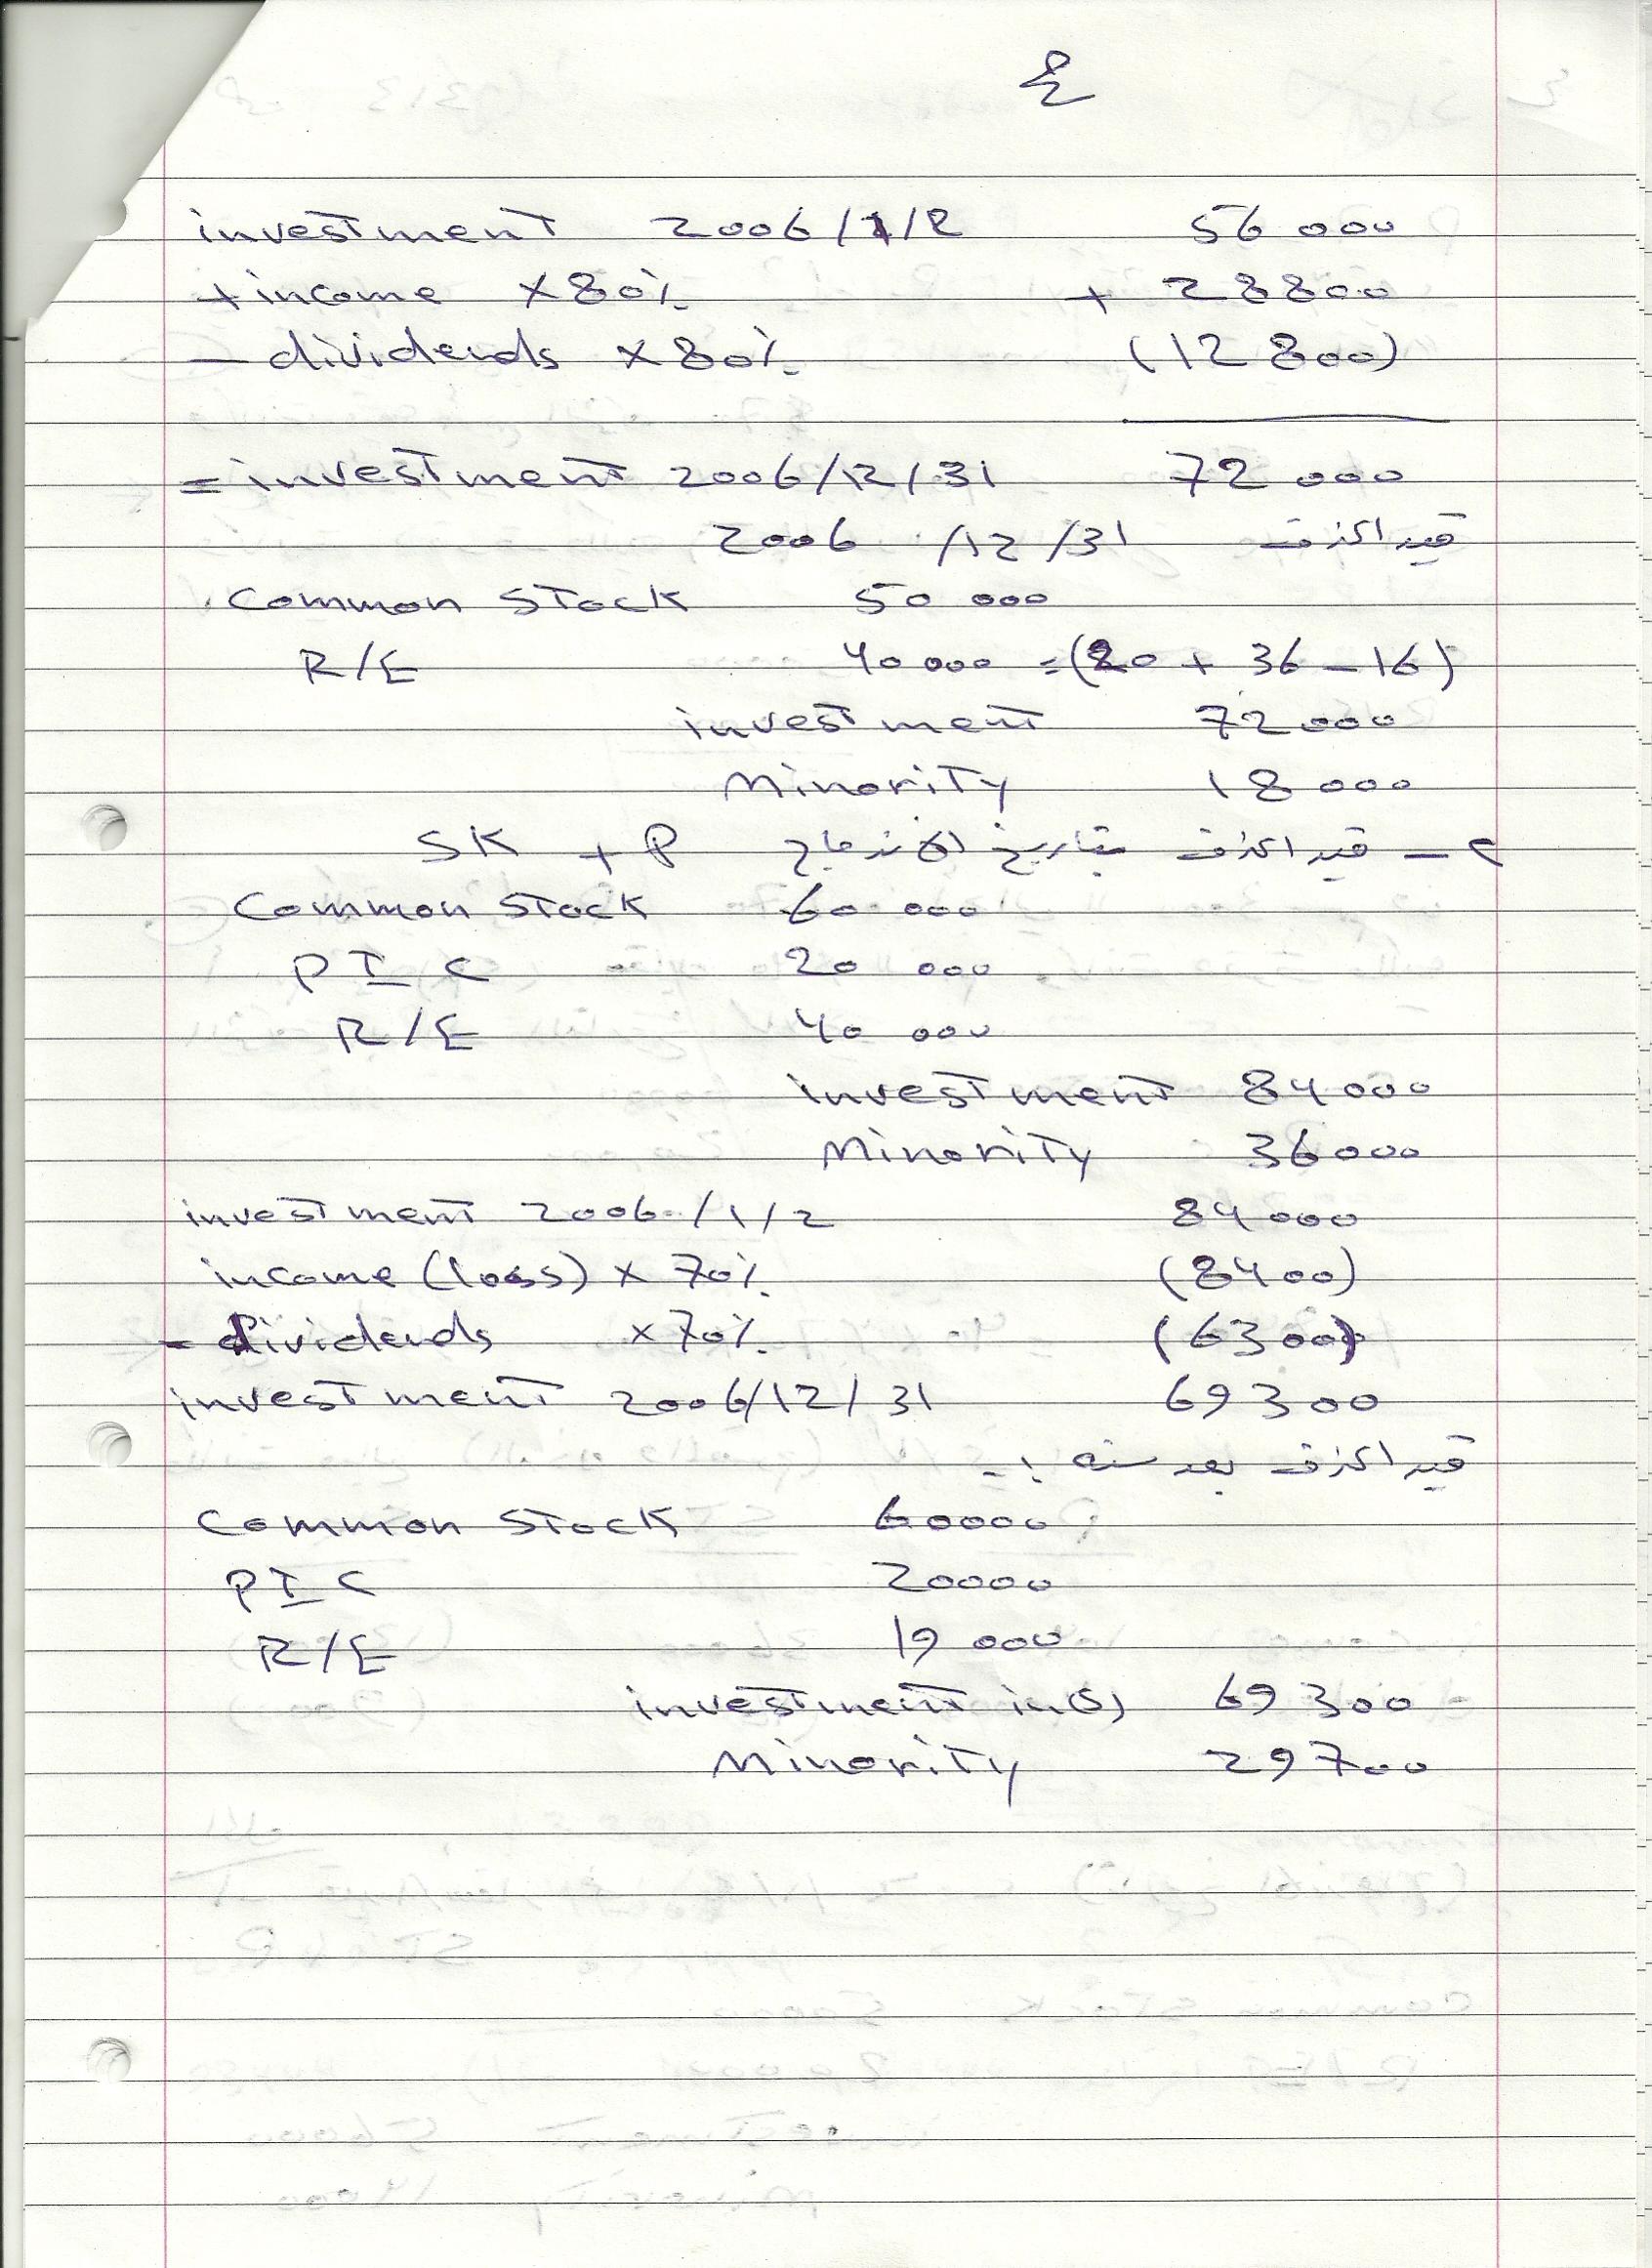 ٤
investment 2006/1/2 56 000
+ income × 80% + 28800
- dividends × 80% (12 800)
= investment 2006/12/31 72 000
2006 /12/31 قيد الحذف
Common Stock 50 000
R/E 40 000 = (20 + 36 - 16)
investment 72000
Minority 18 000
٢ - قيد الحذف بتاريخ الاندماج SK + P
Common Stock 60 000
PIC 20 000
R/E 40 000
investment 84000
Minority 36000
investment 2006/1/2 84000
income (loss) × 70% (8400)
- dividends × 70% (6300)
investment 2006/12/31 69300
قيد الحذف بعد سنه :-
Common Stock 60000
PIC 20000
R/E 19 000
investment in(S) 69 300
Minority 29700